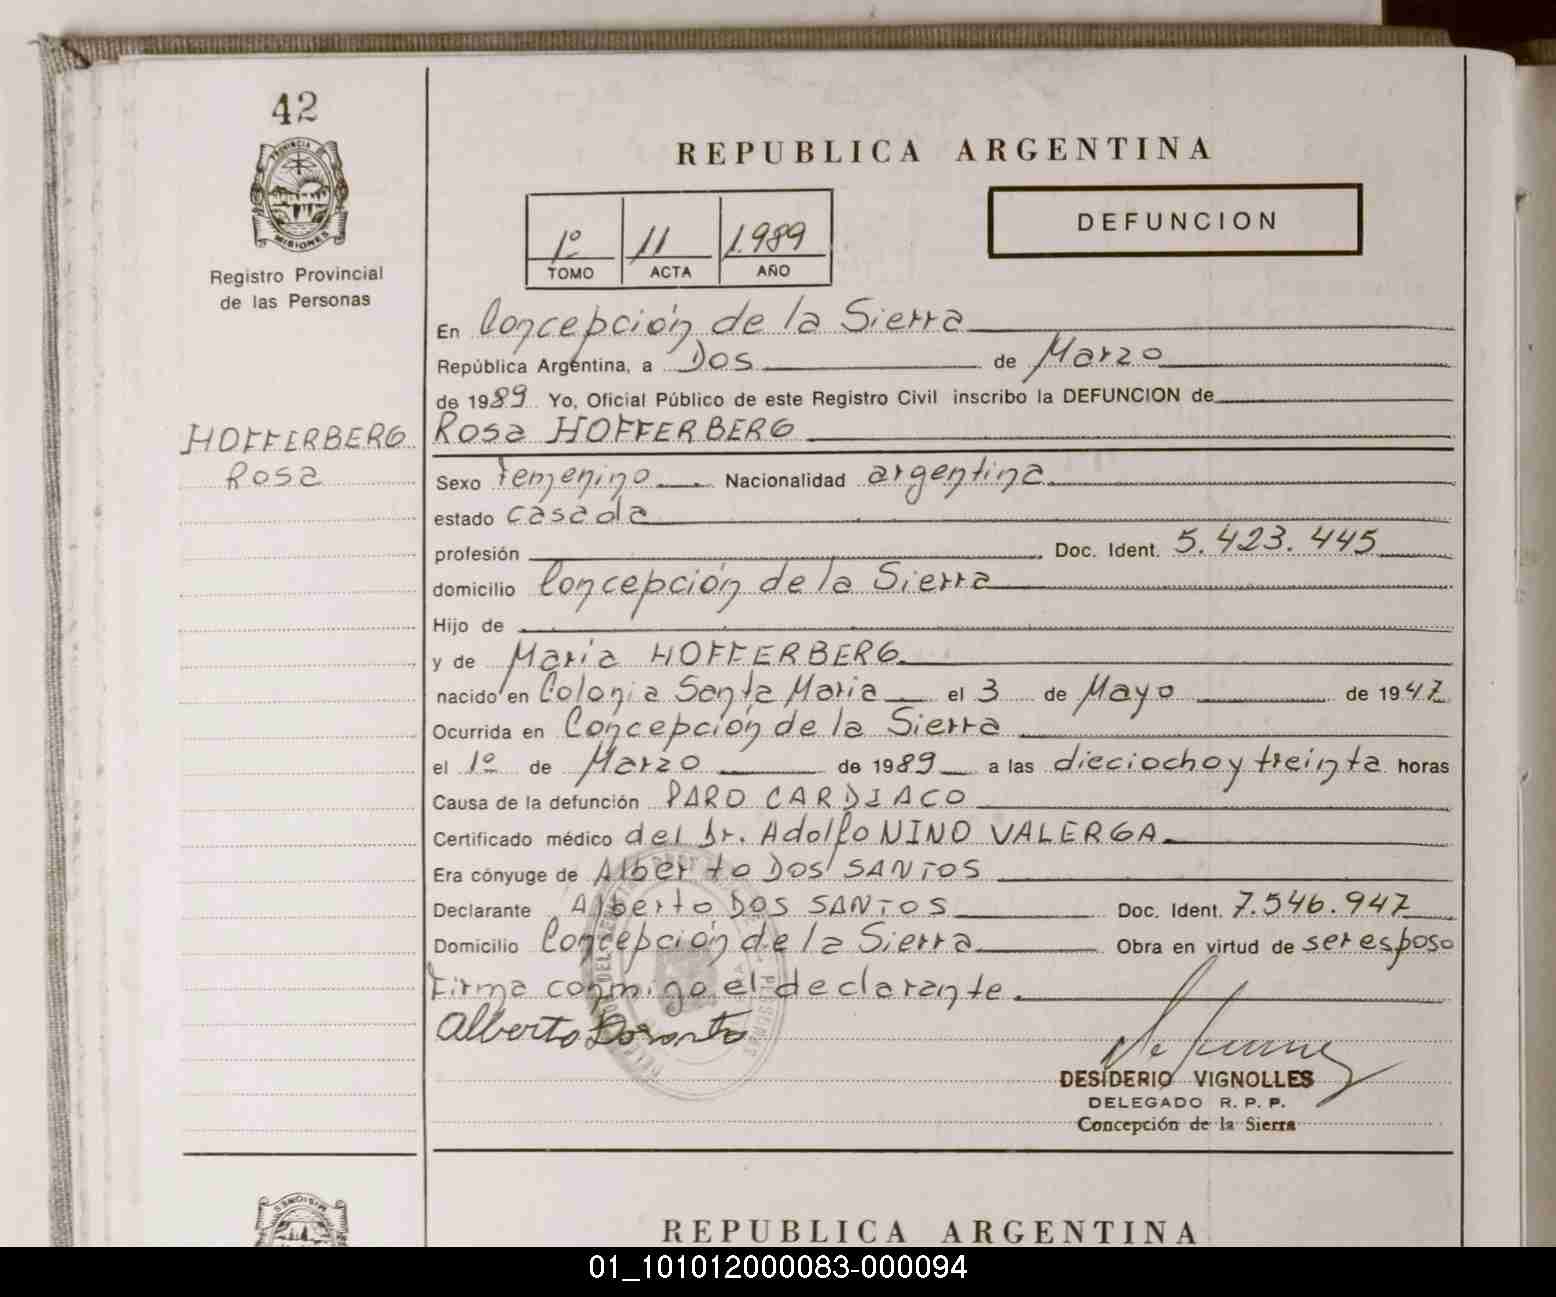 42
PROVINCIA DE
MISIONES
Registro Provincial
de las Personas
HOFFERBERG
Rosa
REPUBLICA ARGENTINA
1º 11 1.989
TOMO ACTA AÑO
DEFUNCION
En Concepción de la Sierra
República Argentina, a Dos de Marzo
de 1989 Yo, Oficial Público de este Registro Civil inscribo la DEFUNCION de
Rosa HOFFERBERG
Sexo femenino Nacionalidad argentina
estado casada
profesión Doc. Ident. 5.423.445
domicilio Concepción de la Sierra
Hijo de
y de Maria HOFFERBERG
nacido en Colonia Santa Maria el 3 de Mayo de 1947
Ocurrida en Concepción de la Sierra
el 1º de Marzo de 1989 a las dieciocho y treinta horas
Causa de la defunción PARO CARDIACO
Certificado médico del Dr. Adolfo NINO VALERGA
Era cónyuge de Alberto DOS SANTOS
Declarante Alberto DOS SANTOS Doc. Ident. 7.546.947
Domicilio Concepción de la Sierra Obra en virtud de ser esposo
Firma conmigo el declarante.
Alberto Dosantos
DESIDERIO VIGNOLLES
DELEGADO R. P. P.
Concepción de la Sierra
MISIONES
REPUBLICA ARGENTINA
01_101012000083-000094